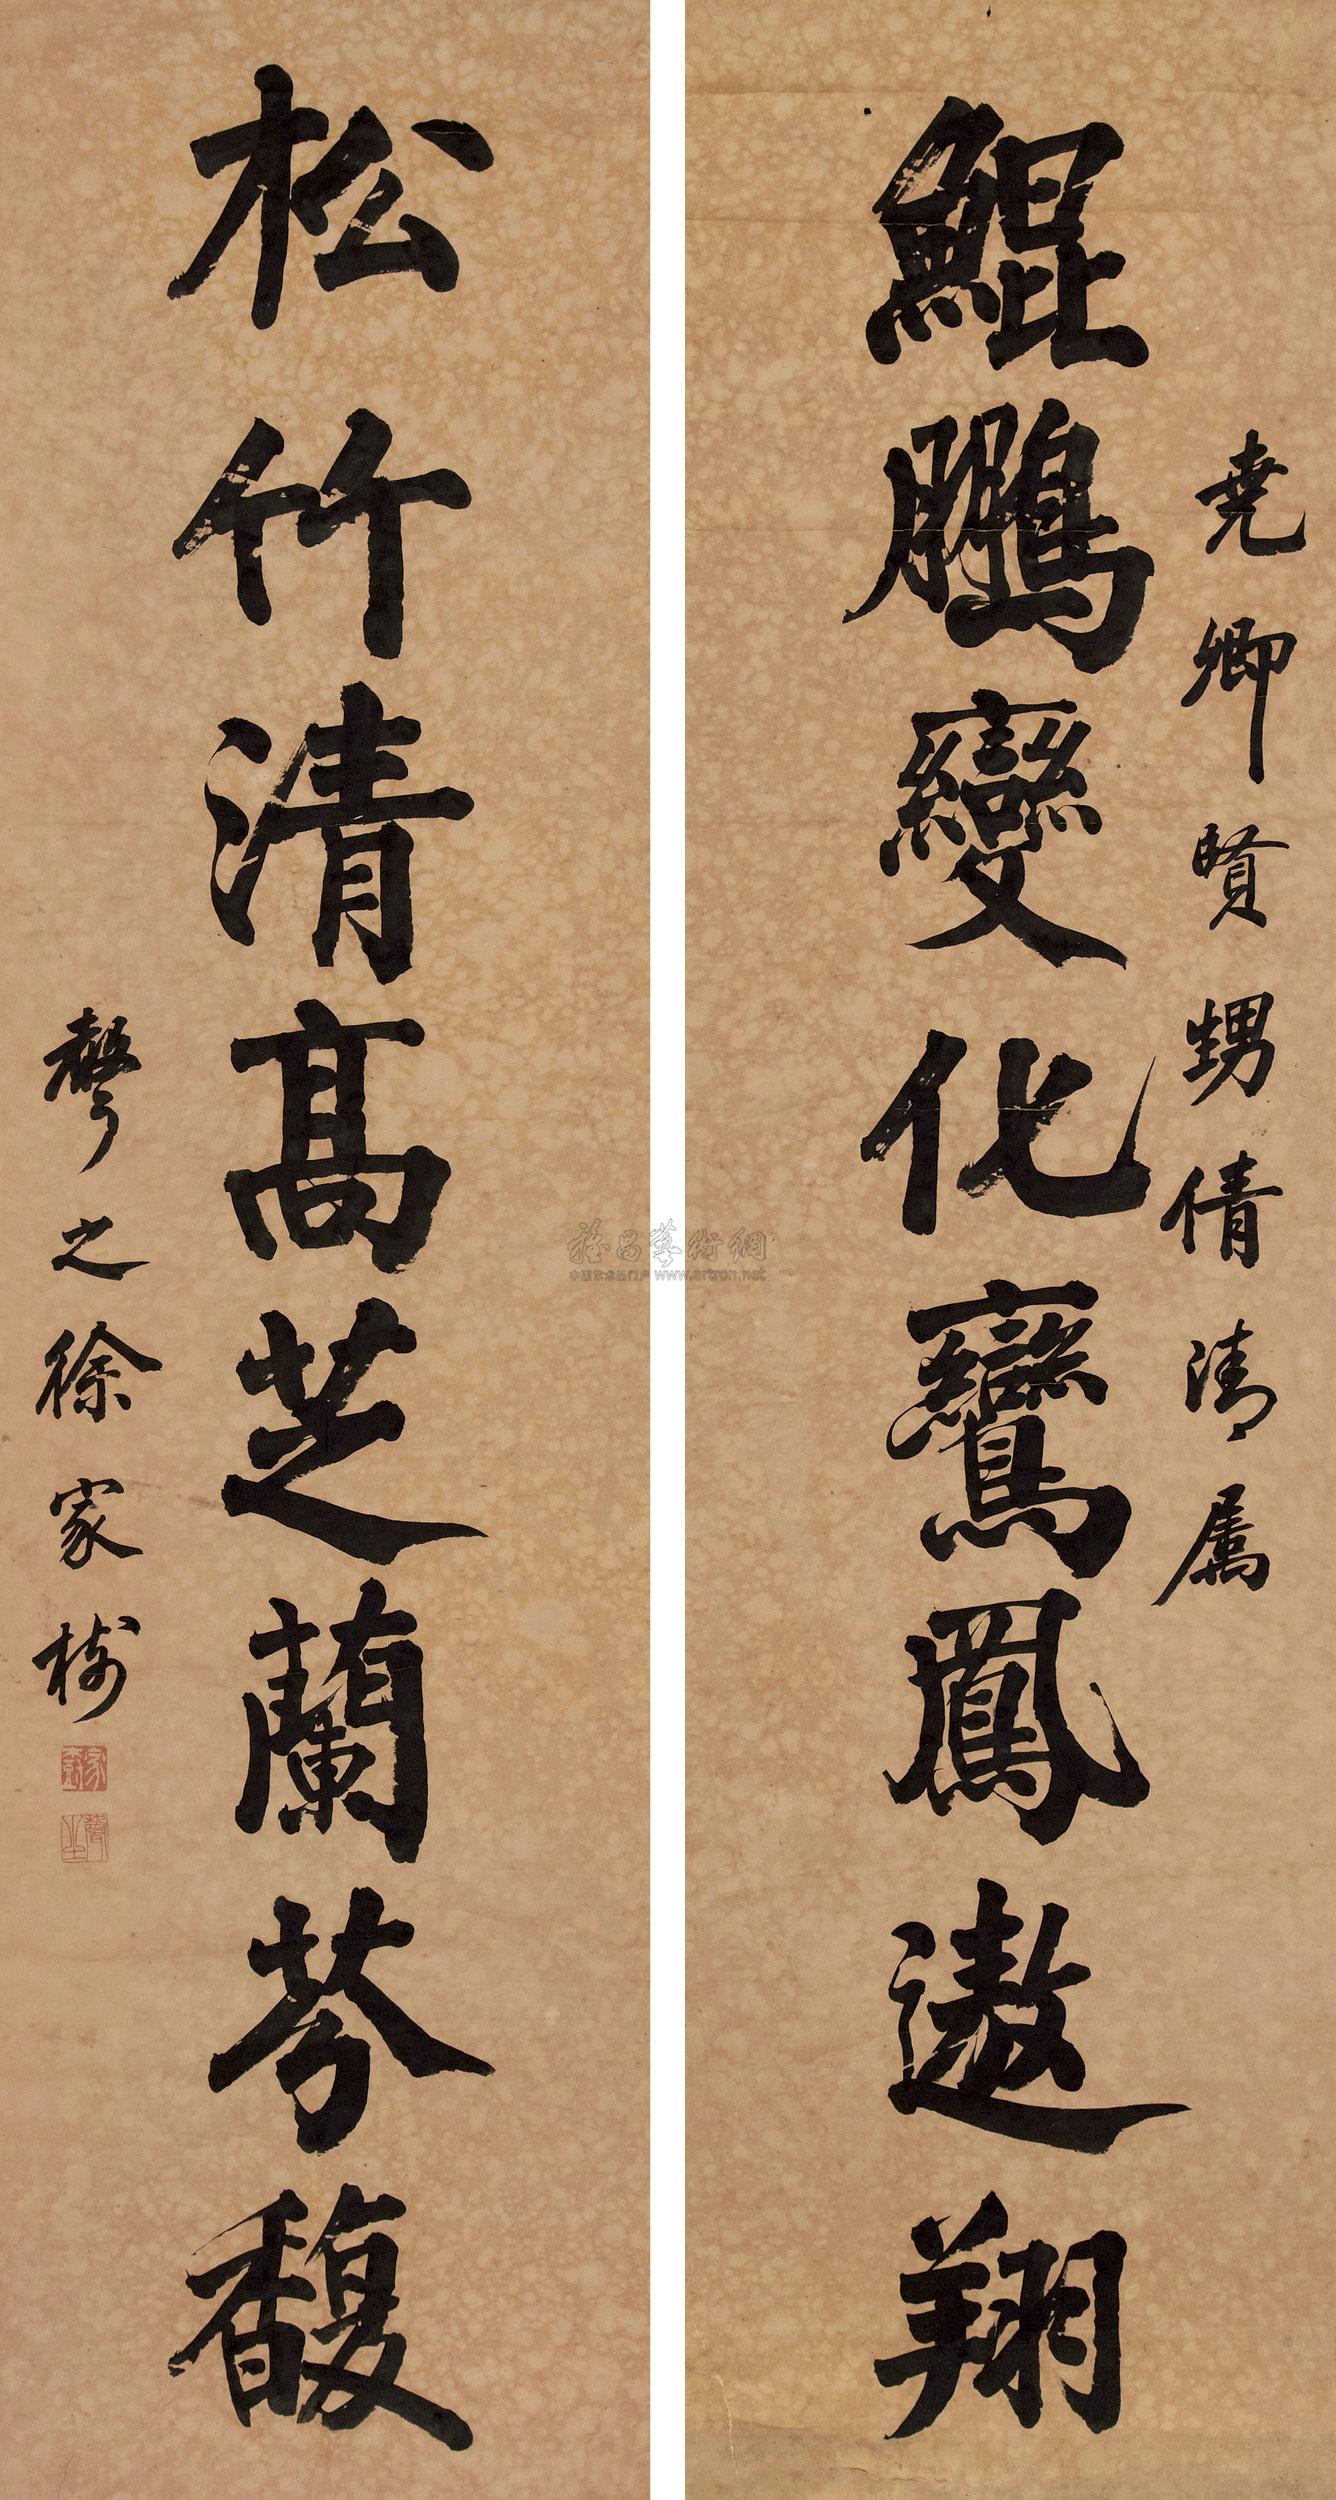 堯卿賢甥倩清属
鯤鵬變化鸞鳳遨翔
松竹清高芝蘭芬馥
聲之徐家樹
雅昌藝術網
中国艺术品门户 www.artron.net